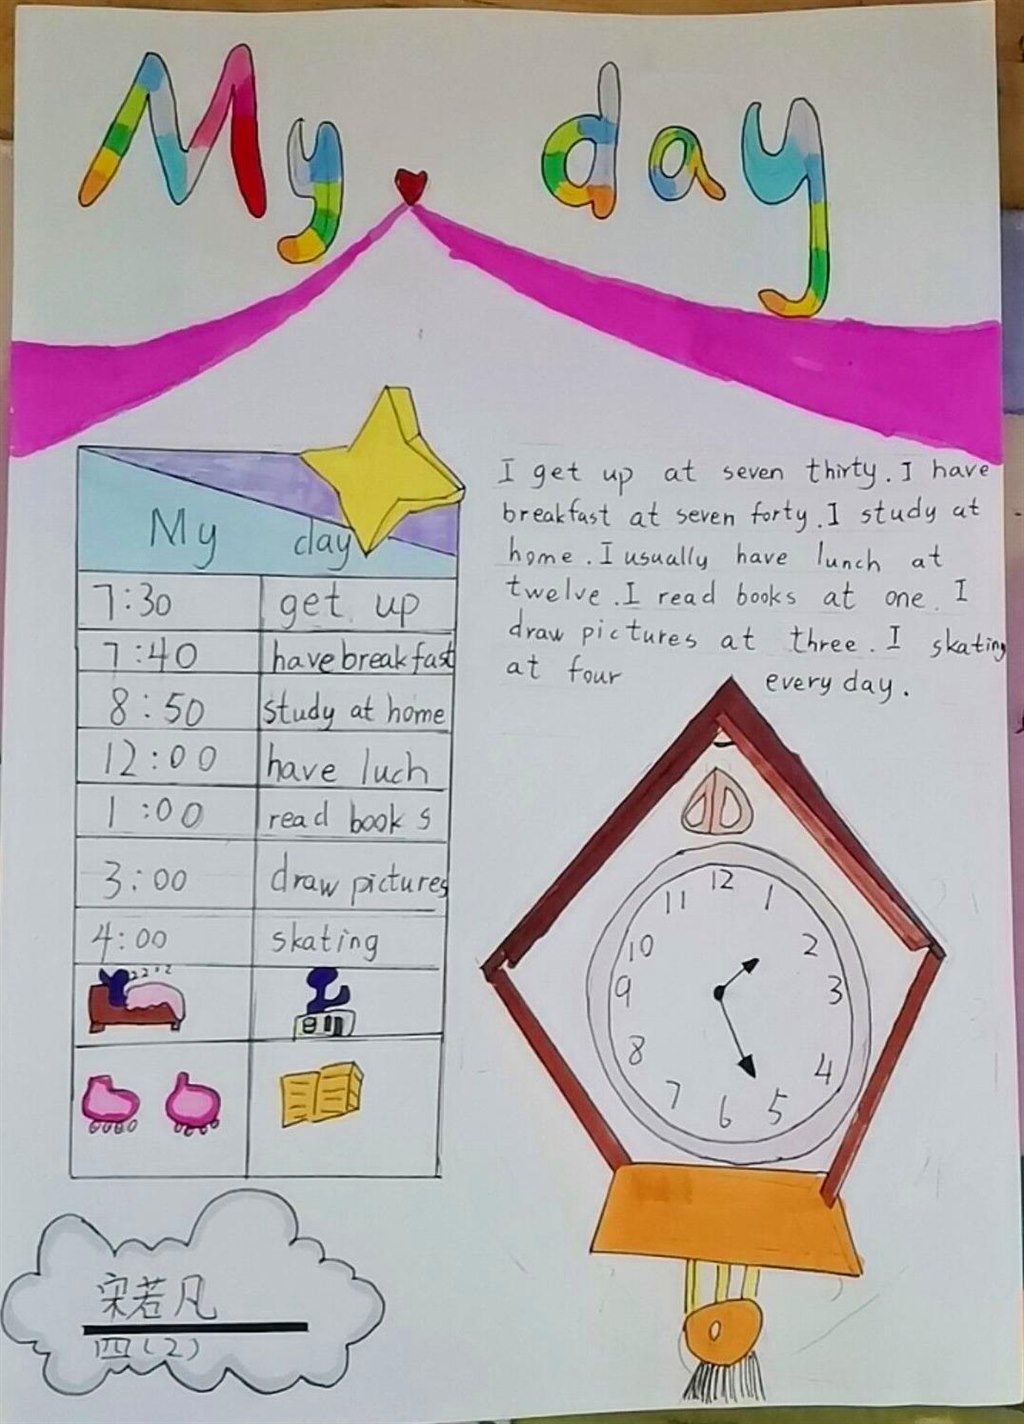 My day
My day
7:30 get up
7:40 have breakfast
8:50 study at home
12:00 have luch
1:00 read books
3:00 draw pictures
4:00 skating
zzzz
I get up at seven thirty. I have
breakfast at seven forty. I study at
home. I usually have lunch at
twelve. I read books at one. I
draw pictures at three. I skating
at four every day.
12
11 1
10 2
9 3
8 4
7 5
6
宋若凡
四(2)